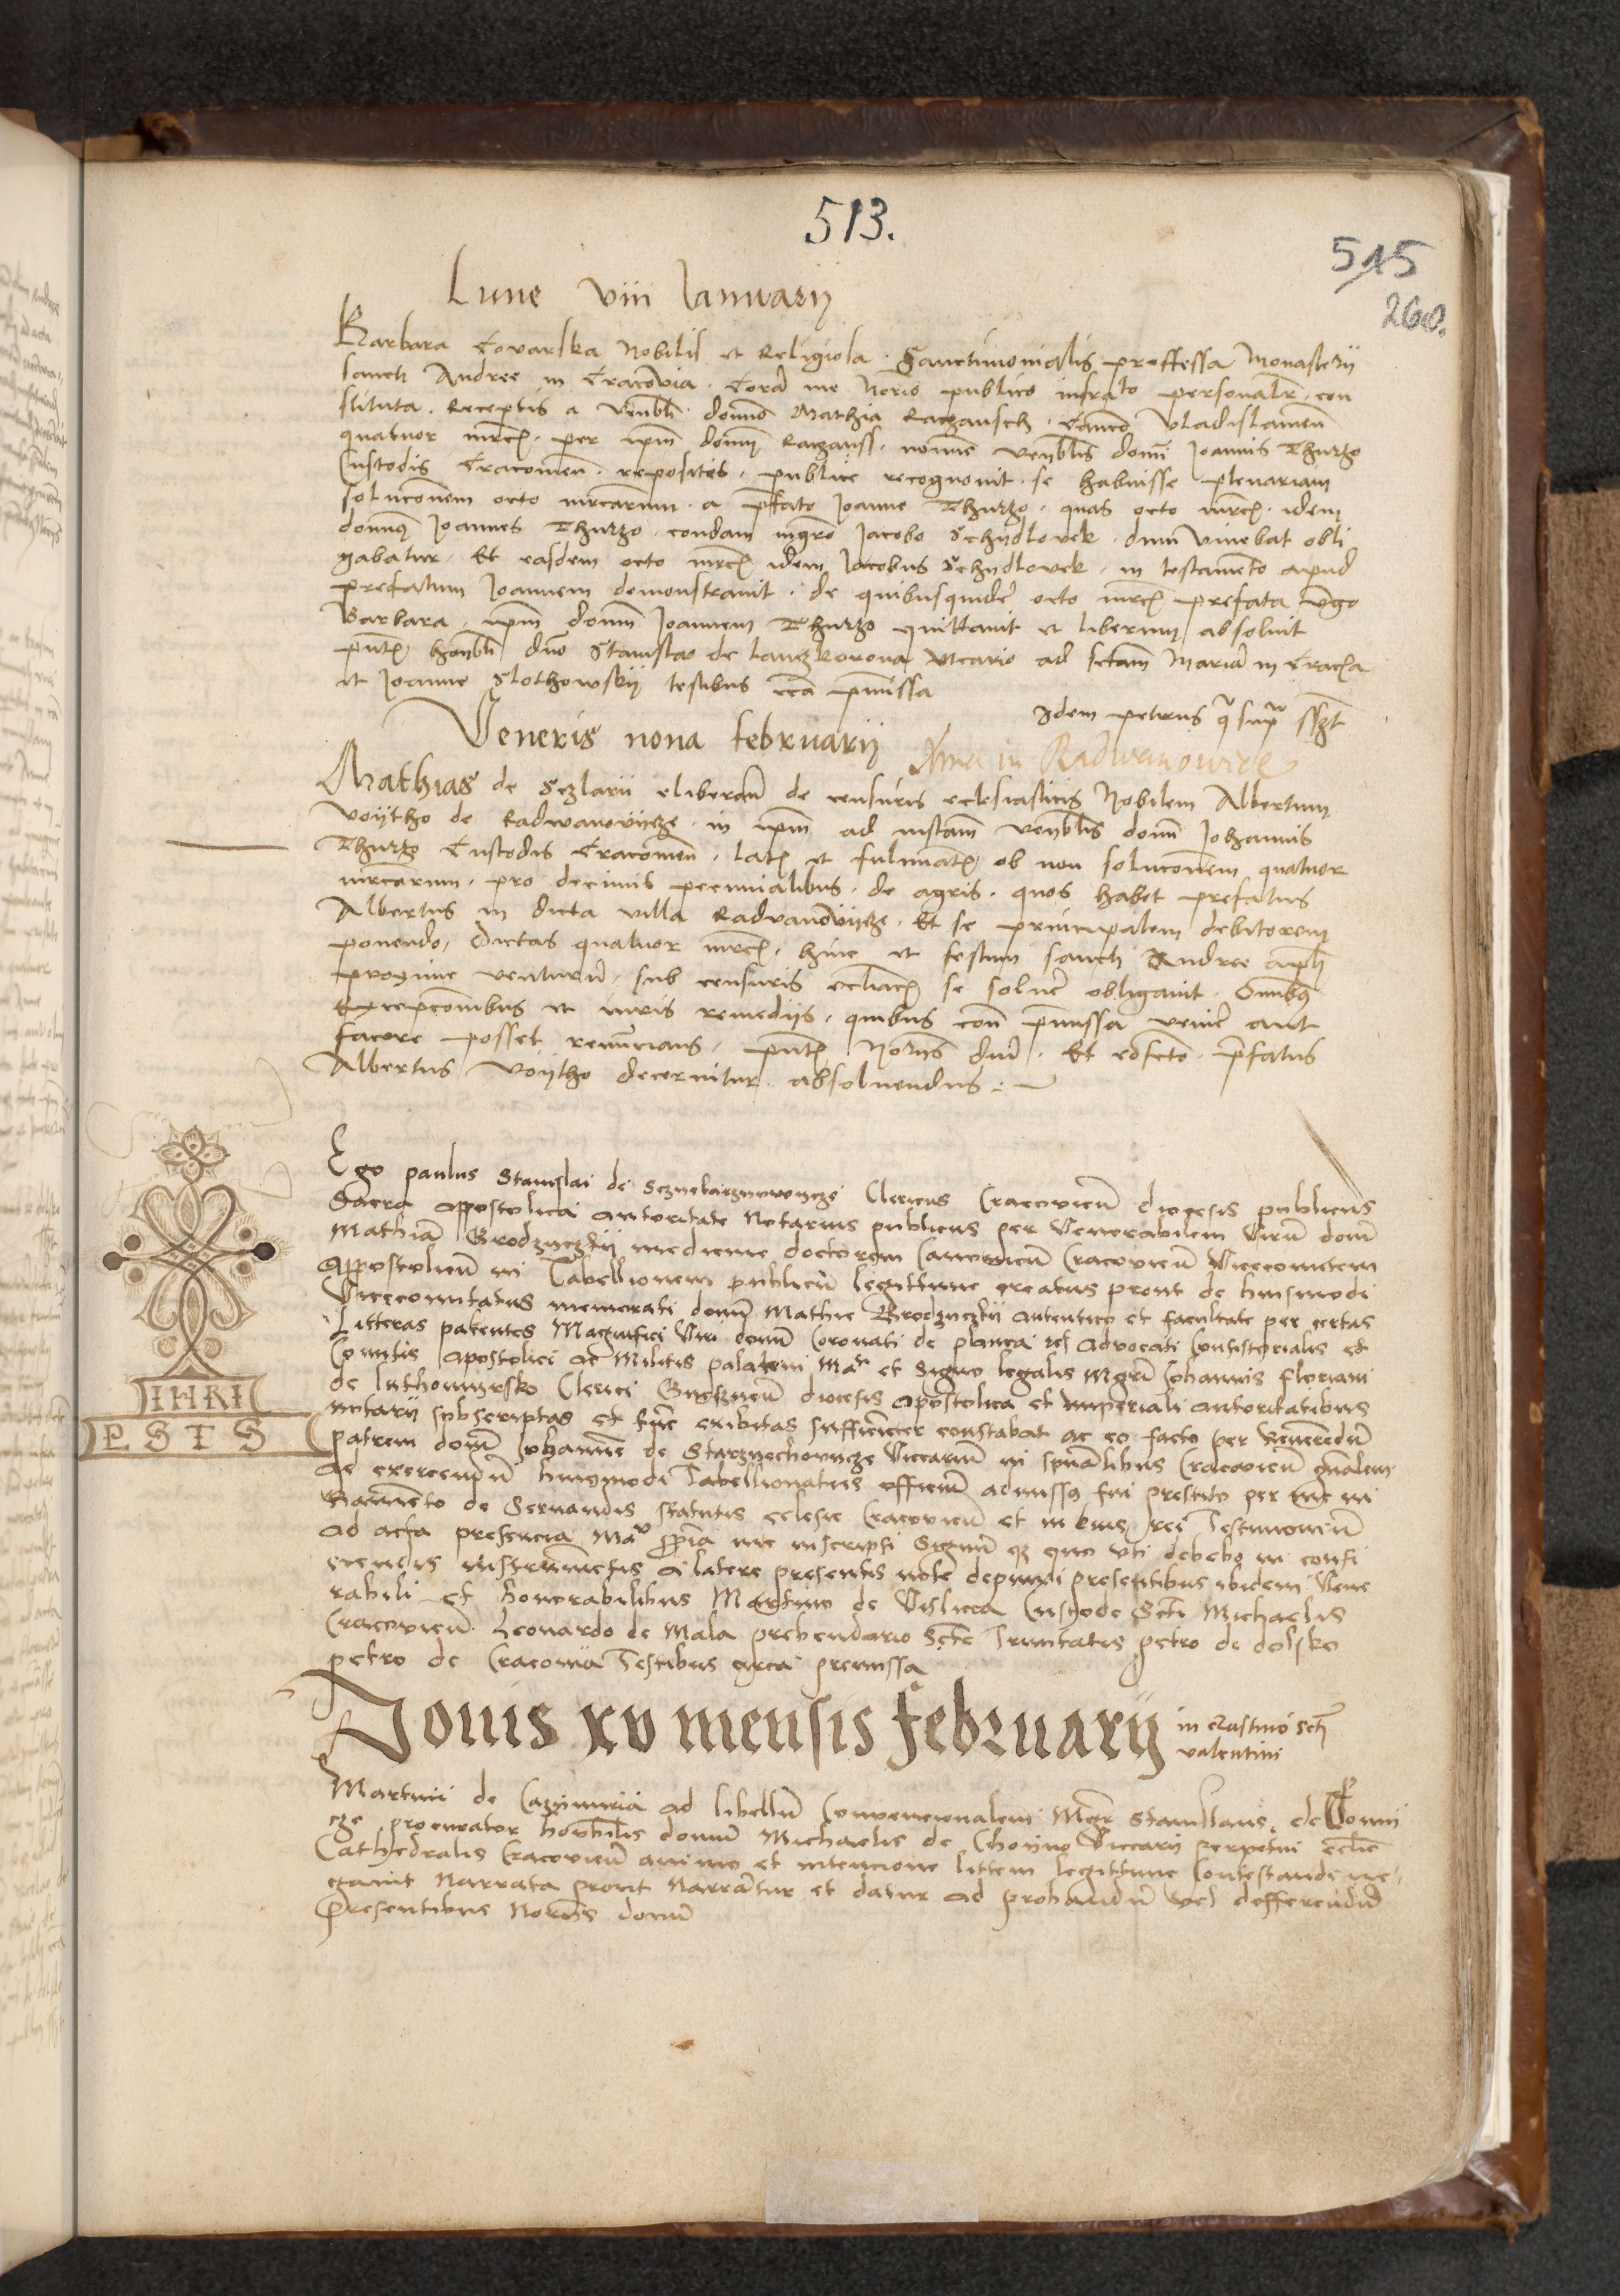 513.
515
260.
Lune viii Ianuarij
Barbara Covarska Nobilis et Religiosa Sanctimonialis proffessa Monasterij
sancti Andree in Cracovia. Corā me Norio publico infrato personalr. con
stituta. Receptis a venbli. domno Mathia Raczansch. Canco Vladislamen̄
quatuor mrcis. per ipm domn̄ Raczanss. nomine venblis domi Joannis Thurzo
Custodis Cracouien̄. repositis. publice recognouit. se habuisse plenariam
soluconem octo mrcarum. a pfato Joanne Thurzo. quas octo mrcis. idem
domnus Joannes Thurzo. condam mgro Jacobo Schydlovek. dum viuebat obli
gabatur. Et easdem octo mrcis idem Jacobus Schydlovek. in testamento apud
prefatum Joannem demonstrauit. de quibusquidē octo mrcis prefata virgo
Barbara. ipm domn̄ Joannem Thurzo quittauit et liberum absoluit
pntib honbli dno Stanislao de Lanczkorona vicario ad sctam Mariā in Cracia
et Joanne Slothowskij testibus cca pmissa
Idem petrus q supra sszt
Veneris nona februarij
Xma in Radwanowicze
Mathias de Sczlarij eliberan̄ de censuris ecclesiasticis Nobilem Albertum
Voijtho de Radwanovijcze. in ipm ad instan̄ venblis domi Johannis
Thurzo Custodis Cracouien̄. latis et fulminatis ob non soluconem quatuor
mrcarum. pro decimis pecunialibus. de agris. quos habet prefatus
Albertus in dicta villa Radvanovijcze. Et se principalem debitorem
ponendo, dictas quatuor mrcis. hinc et festum sancti Andree apli
proxime venturū. sub censuris eccliacis se soluere obligauit. Omnibus
excepconibus et iuris remedijs. quibus con̄ pmissa venire aut
facere posset renuncians. pntib. Norijs dni. Et eofacto. prefatus
Albertus Voijtho decernitur absoluendus :~
Ego paulus Stanislai de Clericus Cracouien̄ diocesis publicus
Sacra appostolica autoritate Notarius publicus per Venerabilem Virū domn̄
Mathiā Brodzyczkij medicine doctorem Canonicū Cracouien̄ Vicecomitem
Appostolicū in Tabellionem publicū legittime creatus prout de huiusmodi
Vicecomitatus memorati domi Mathie Brodzyczkij autentico et facultate per certas
Litteras patentes Magnifici Viri domi Coronati de planca Advocati Consistorialis et
Comitis apostolici ac Militis palatini Manu et Signo legalis Mgri Johannis floriani
de luthomyrsko Clerici Gneznen̄ diocesis apostolica et Imperiali autoritatibus
notarij subscriptas et exibitas sufficienter constabat ac eo facto per Reuerendū
patrem domn̄ Johannē de Starzychovycze Viccariū in spualibus Cracouien̄ gnalem
ad exercendū huiusmodi Tabellionatus officiū admissus fui prestito per me iu
ramento de Seruandis statutis eclesie Cracouien̄ et in huius rei Testimoniū
ad acta presencia Manu ppria me inscripsi Signū quo uti debebo in confi
ciendis instrumentis a latere presentis note depinxi presentibus ibidem Vene
rabili et honorabilibus Martino de Vislicia Custode Scti Michaelis
Cracouien̄ Leonardo de Mala prebendario Scte Trinitatis petro de dolsko
petro de Cracouia Testibus circa premissa
IHRI
P S T S
Jouis xv mensis februarij in crastino scti
valentini
Martini de Cazymiria ad libellū Convencionalem Mgr Stanislaus de
cze procurator honblis domi Michaelis de Choyno Viccarij perpetui ecclie
Cathedralis Cracouien̄ animo et intencione littem legittime Contestandi ne
gauit Narrata prout Narrātur et datur ad probandū vel defferendū
presentibus Norijs domi